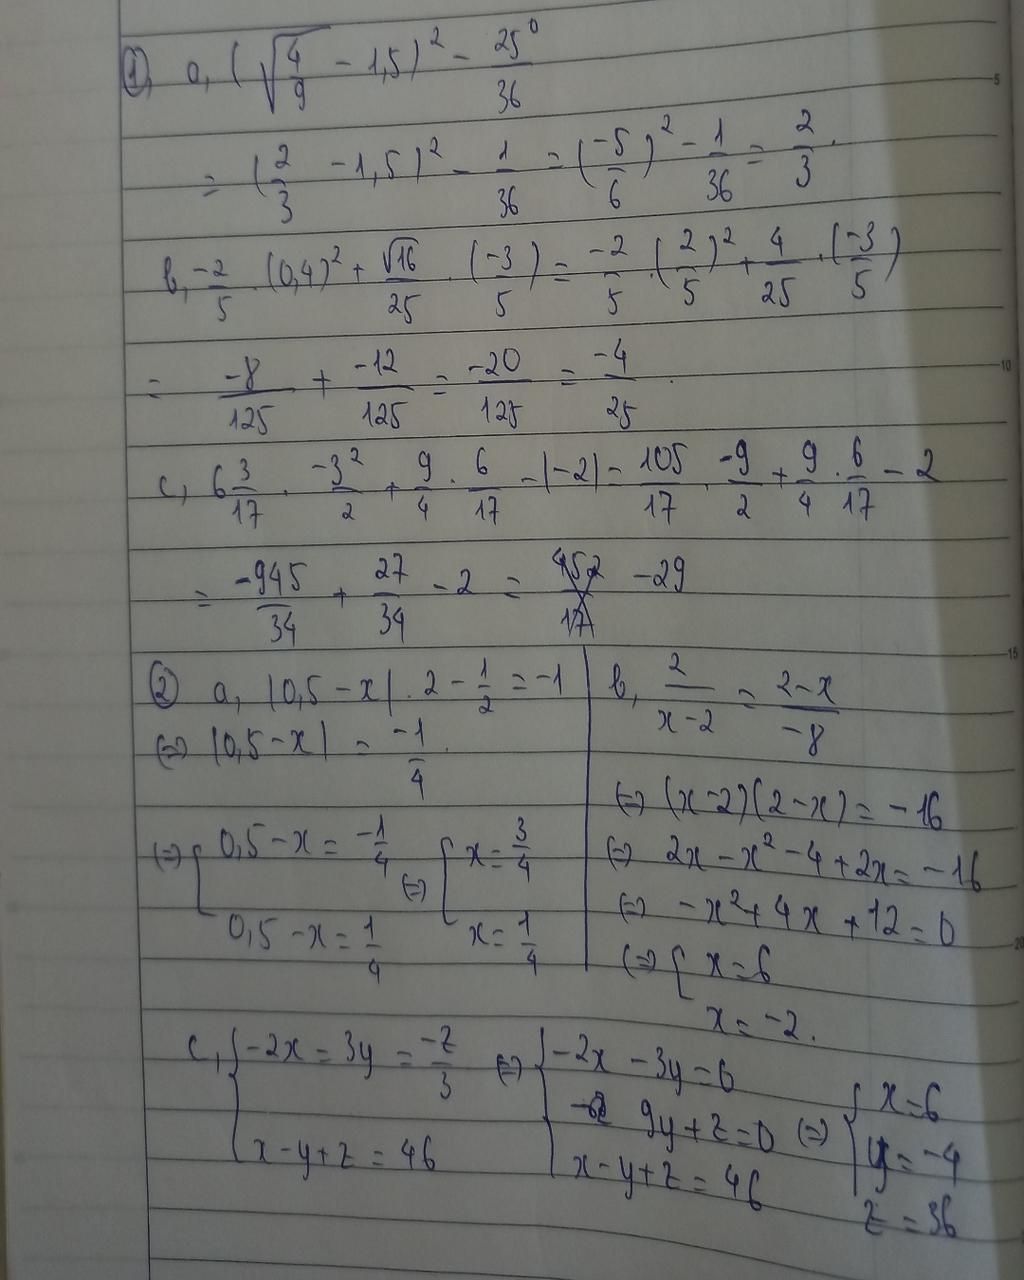 ① a, (√(4/9) - 1,5)² - 25⁰/36
= (2/3 - 1,5)² - 1/36 = (-5/6)² - 1/36 = 2/3.
b, -2/5 . (0,4)² + √16/25 . (-3/5) = -2/5 . (2/5)² + 4/25 . (-3/5)
= -8/125 + -12/125 = -20/125 = -4/25.
c, 6 3/17 . -3²/2 + 9/4 . 6/17 - |-2| = 105/17 . -9/2 + 9/4 . 6/17 - 2
= -945/34 + 27/34 - 2 = -29
② a, |0,5 - x| . 2 - 1/2 = -1
⇔ |0,5 - x| = -1/4.
⇔ [ 0,5 - x = -1/4 ⇔ [ x = 3/4
0,5 - x = 1/4 x = 1/4
b, 2/(x-2) = (2-x)/-8
⇔ (x-2)(2-x) = -16
⇔ 2x - x² - 4 + 2x = -16
⇔ -x² + 4x + 12 = 0
⇔ [ x = 6
x = -2.
c, { -2x = 3y = -z/3 ⇔ { -2x - 3y = 0 ⇔ { x = 6
9y + z = 0 y = -4
x - y + z = 46 x - y + z = 46 z = 36
5
10
15
20